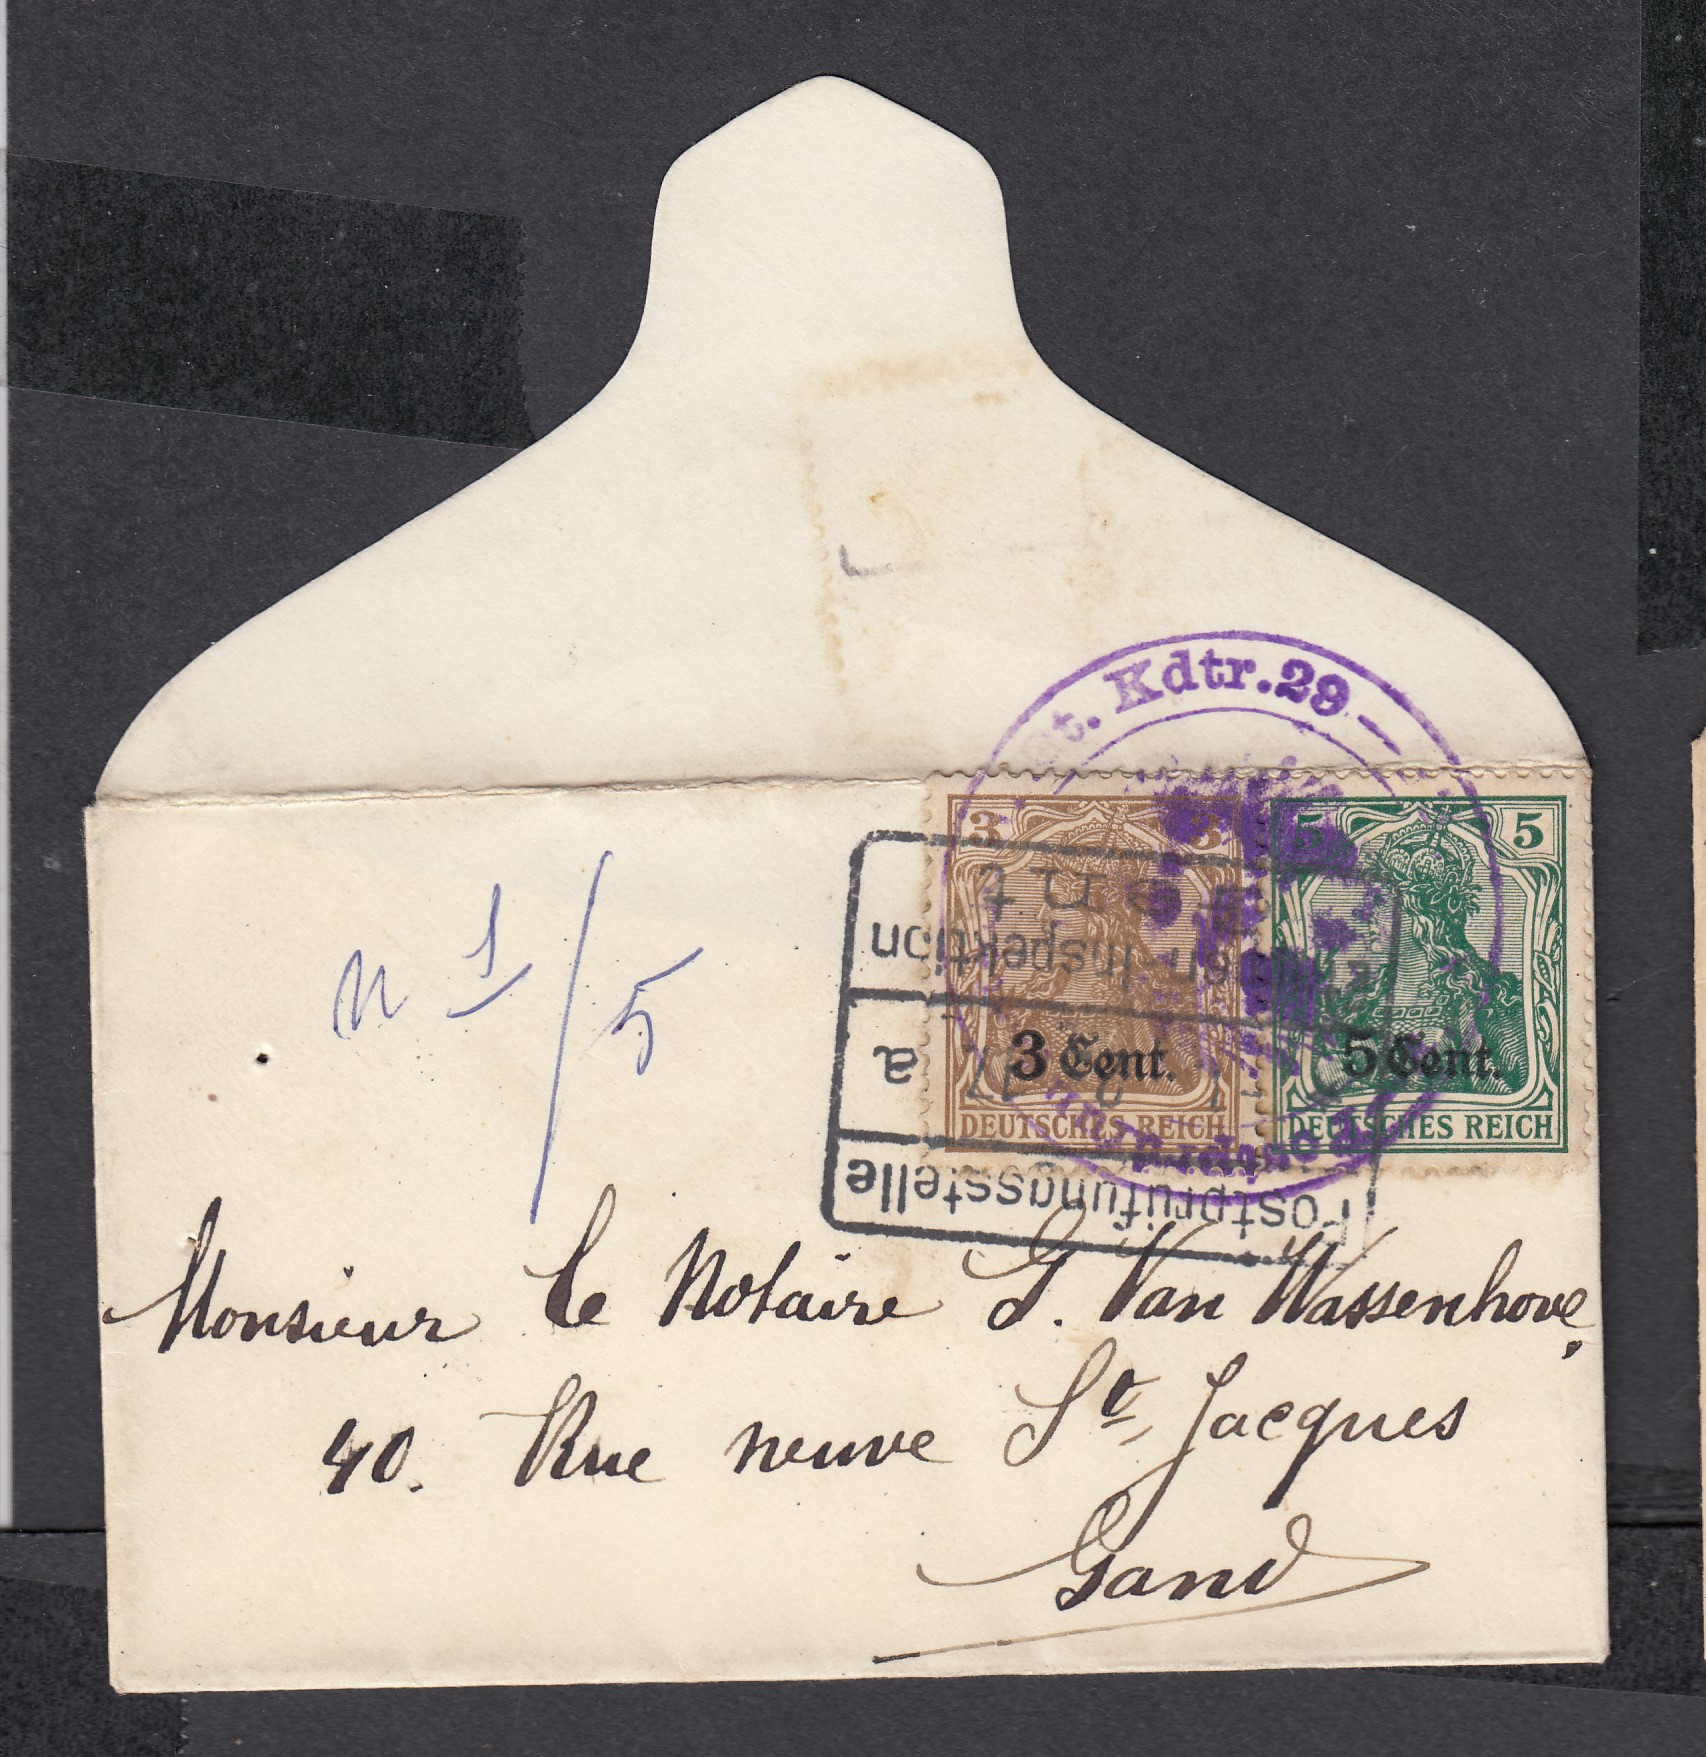 Kdtr. 29
3 3
5 5
3 Cent.
5 Cent.
DEUTSCHES REICH
DEUTSCHES REICH
Gent
Inspektion
a
Postprüfungsstelle
n 1/5
Monsieur le Notaire G. Van Wassenhove,
40. Rue neuve St Jacques
Gand